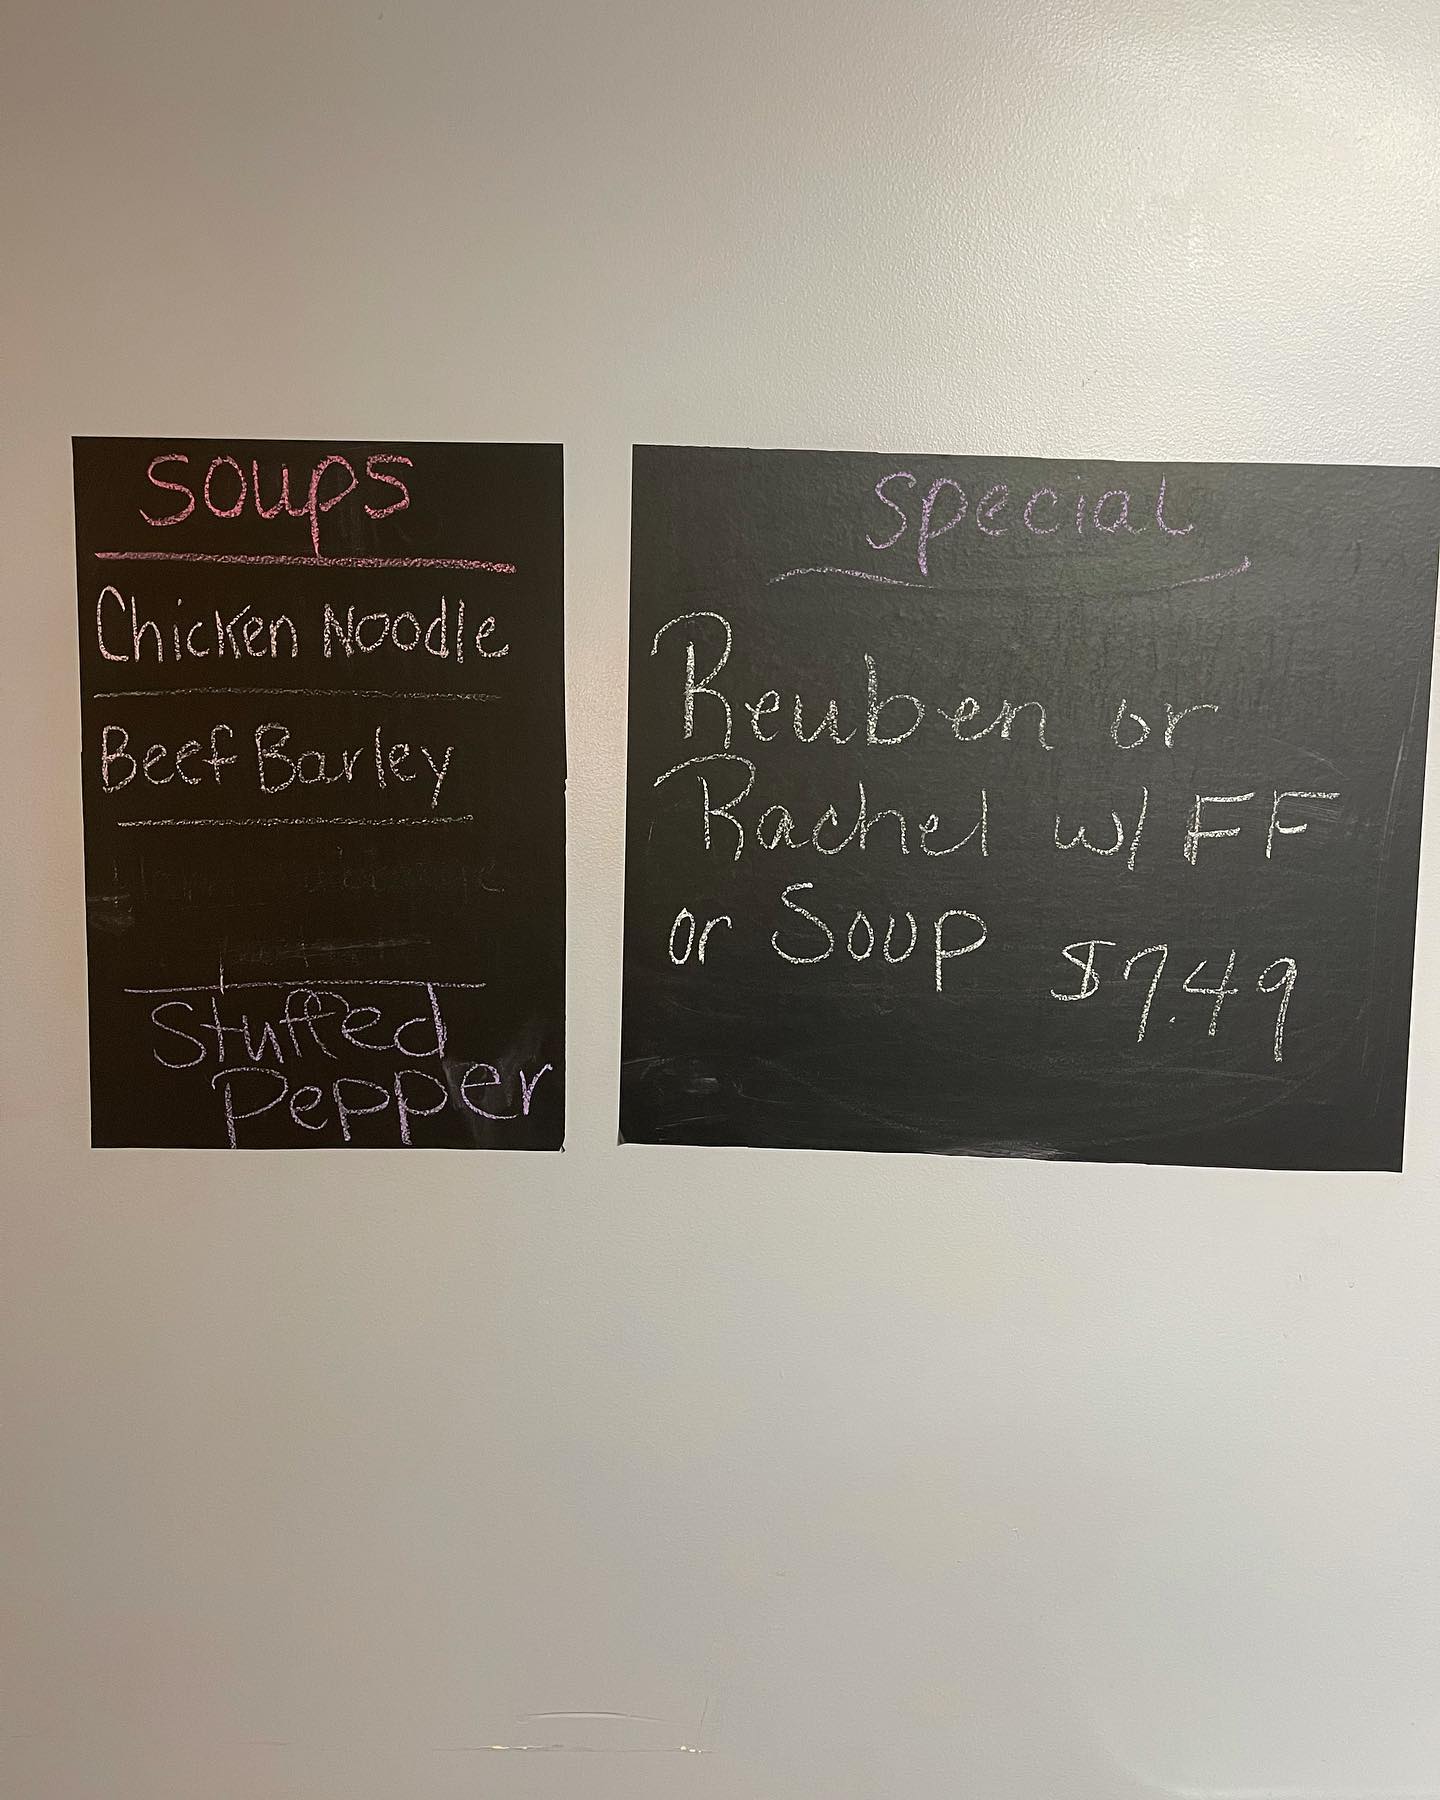 Soups
Chicken Noodle
Beef Barley
Stuffed
Pepper
Special
Reuben or
Rachel w/ FF
or Soup $7.49